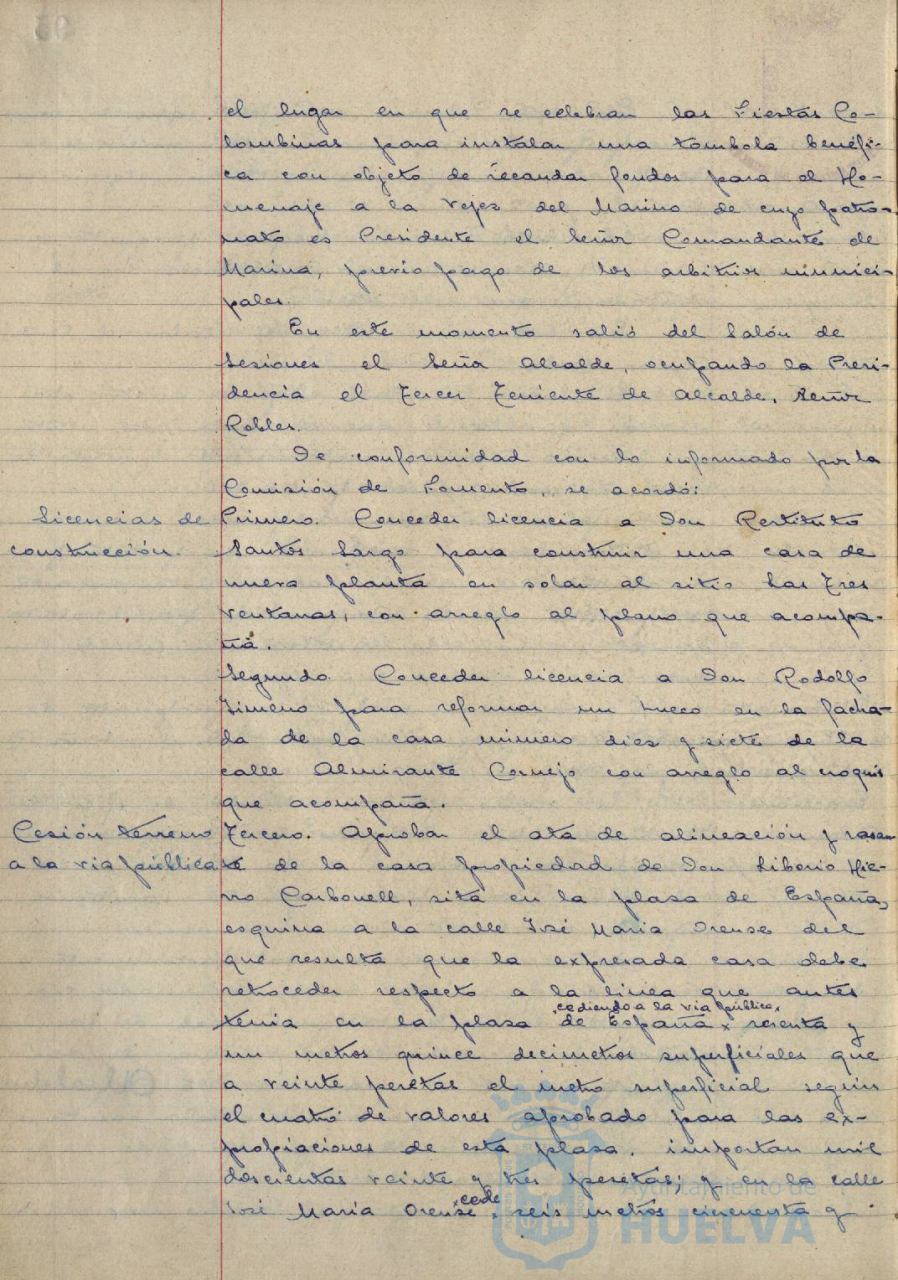 el lugar en que se celebran las Fiestas Co-
lombinas para instalar una tombola benéfi-
ca con objeto de recaudar fondos para el Ho-
menaje a la Vejez del Marino de cuyo patro-
nato es Presidente el Señor Comandante de
Marina, previo pago de los arbitrios munici-
pales.
En este momento salió del Salón de
Sesiones el Señor Alcalde, ocupando la Presi-
dencia el Tercer Teniente de Alcalde, Señor
Robles.
De conformidad con lo informado por la
Comisión de Fomento, se acordó:
Licencias de
construcción.
Primero. Conceder licencia a Don Restituto
Santos Largo para construir una casa de
nueva planta en solar al sitio Las Tres
Ventanas, con arreglo al plano que acompa-
ña.
Segundo. Conceder licencia a Don Rodolfo
Jimeno para reformar un hueco en la facha-
da de la casa número diez y siete de la
calle Almirante Cornejo con arreglo al croquis
que acompaña.
Cesión terreno
a la via pública
Tercero. Aprobar el ata de alineación y rasan
te de la casa propiedad de Don Liborio Hie-
rro Carbonell, sita en la plaza de España,
esquina a la calle José Maria Orense del
que resulta que la expresada casa debe
retroceder respecto a la linea que antes
cediendo a la via pública,
tenia en la plaza de España, sesenta y
un metros quince decimetros superficiales que
a veinte pesetas el metro superficial según
el cuatro de valores aprobado para las ex-
propiaciones de esta plaza, importan mil
doscientas veinte y tres pesetas; y en la calle
cede
José María Orense, seis metros cincuenta y
Ayuntamiento de
HUELVA